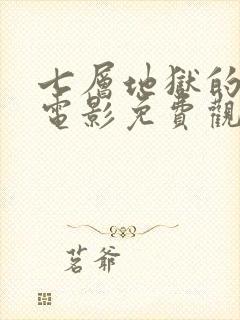 七層地獄的
電影免費觀
茗爺